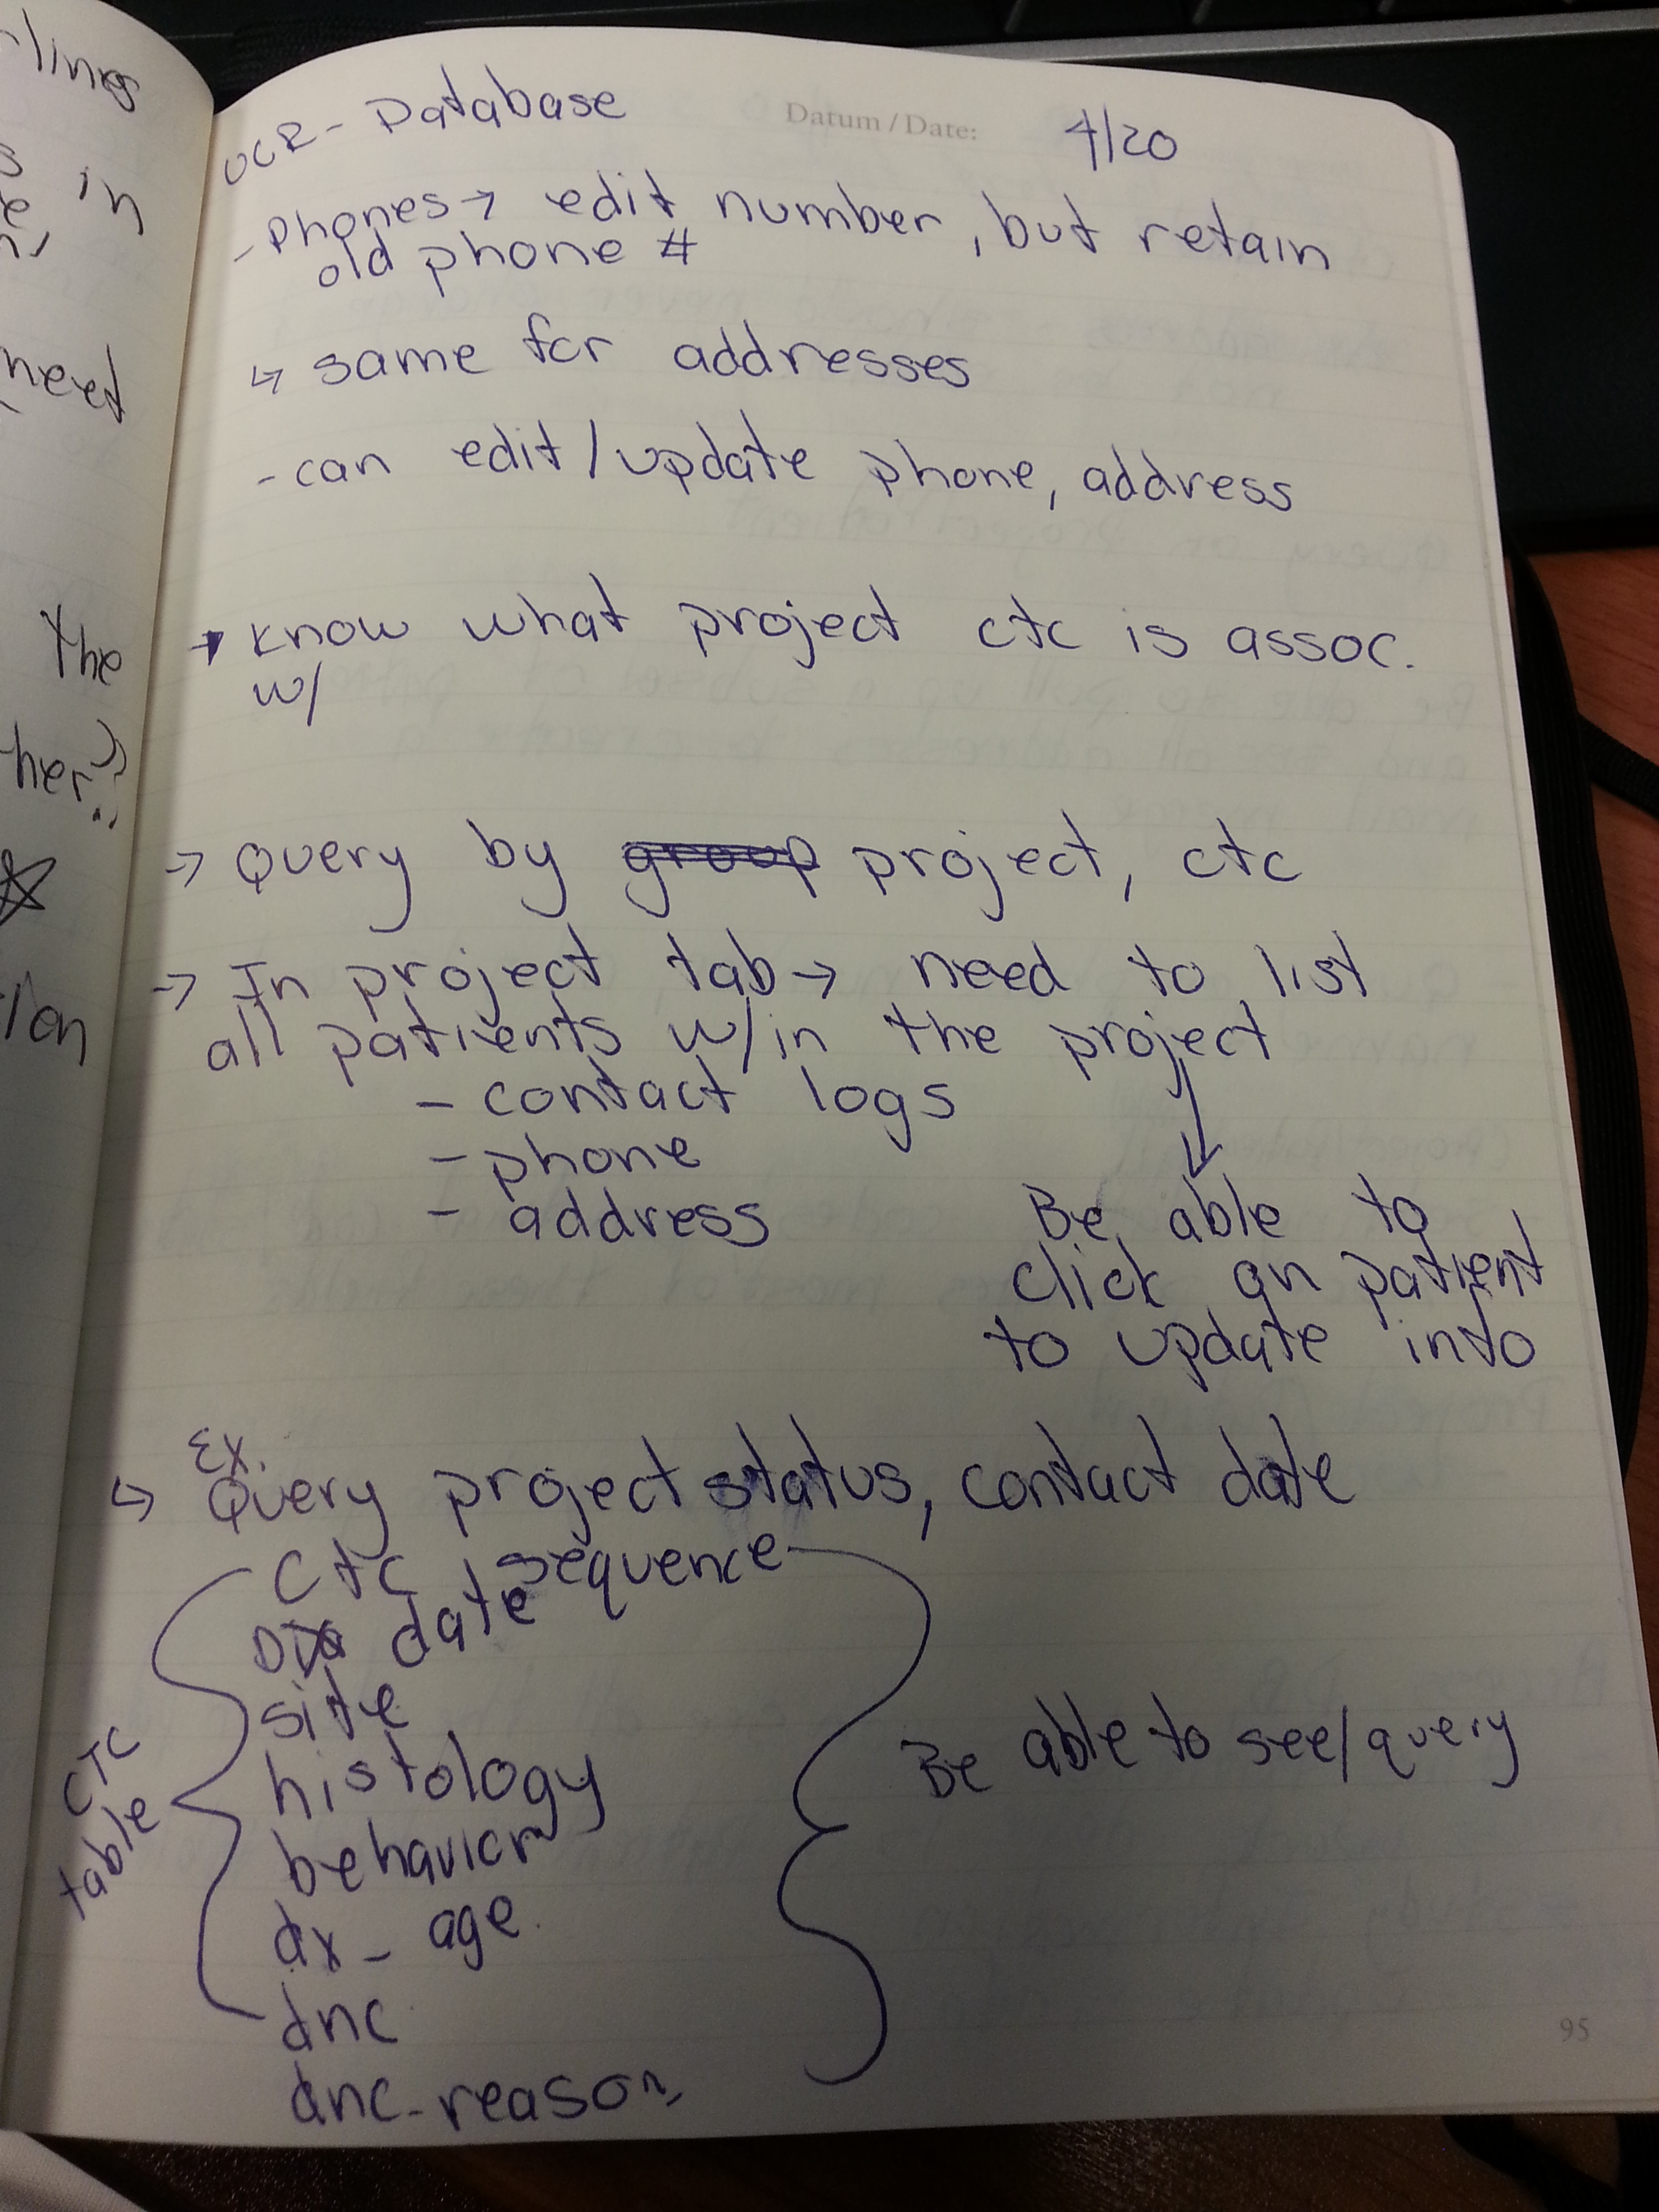 UCR - Database
Datum / Date: 4/20
- phones → edit number, but retain
old phone #
↳ same for addresses
- can edit/update phone, address
→ know what project ctc is assoc.
w/
→ Query by group project, ctc
→ In project tab → need to list
all patients w/in the project
- contact logs
- phone
- address
Be able to
click on patient
to update info
Ex.
↳ Query project status, contact date
ctc sequence
date
site
histology
behavior
dx_age
dnc
dnc_reason
CTC
table
Be able to see/query
95
lings
in
need
the
her